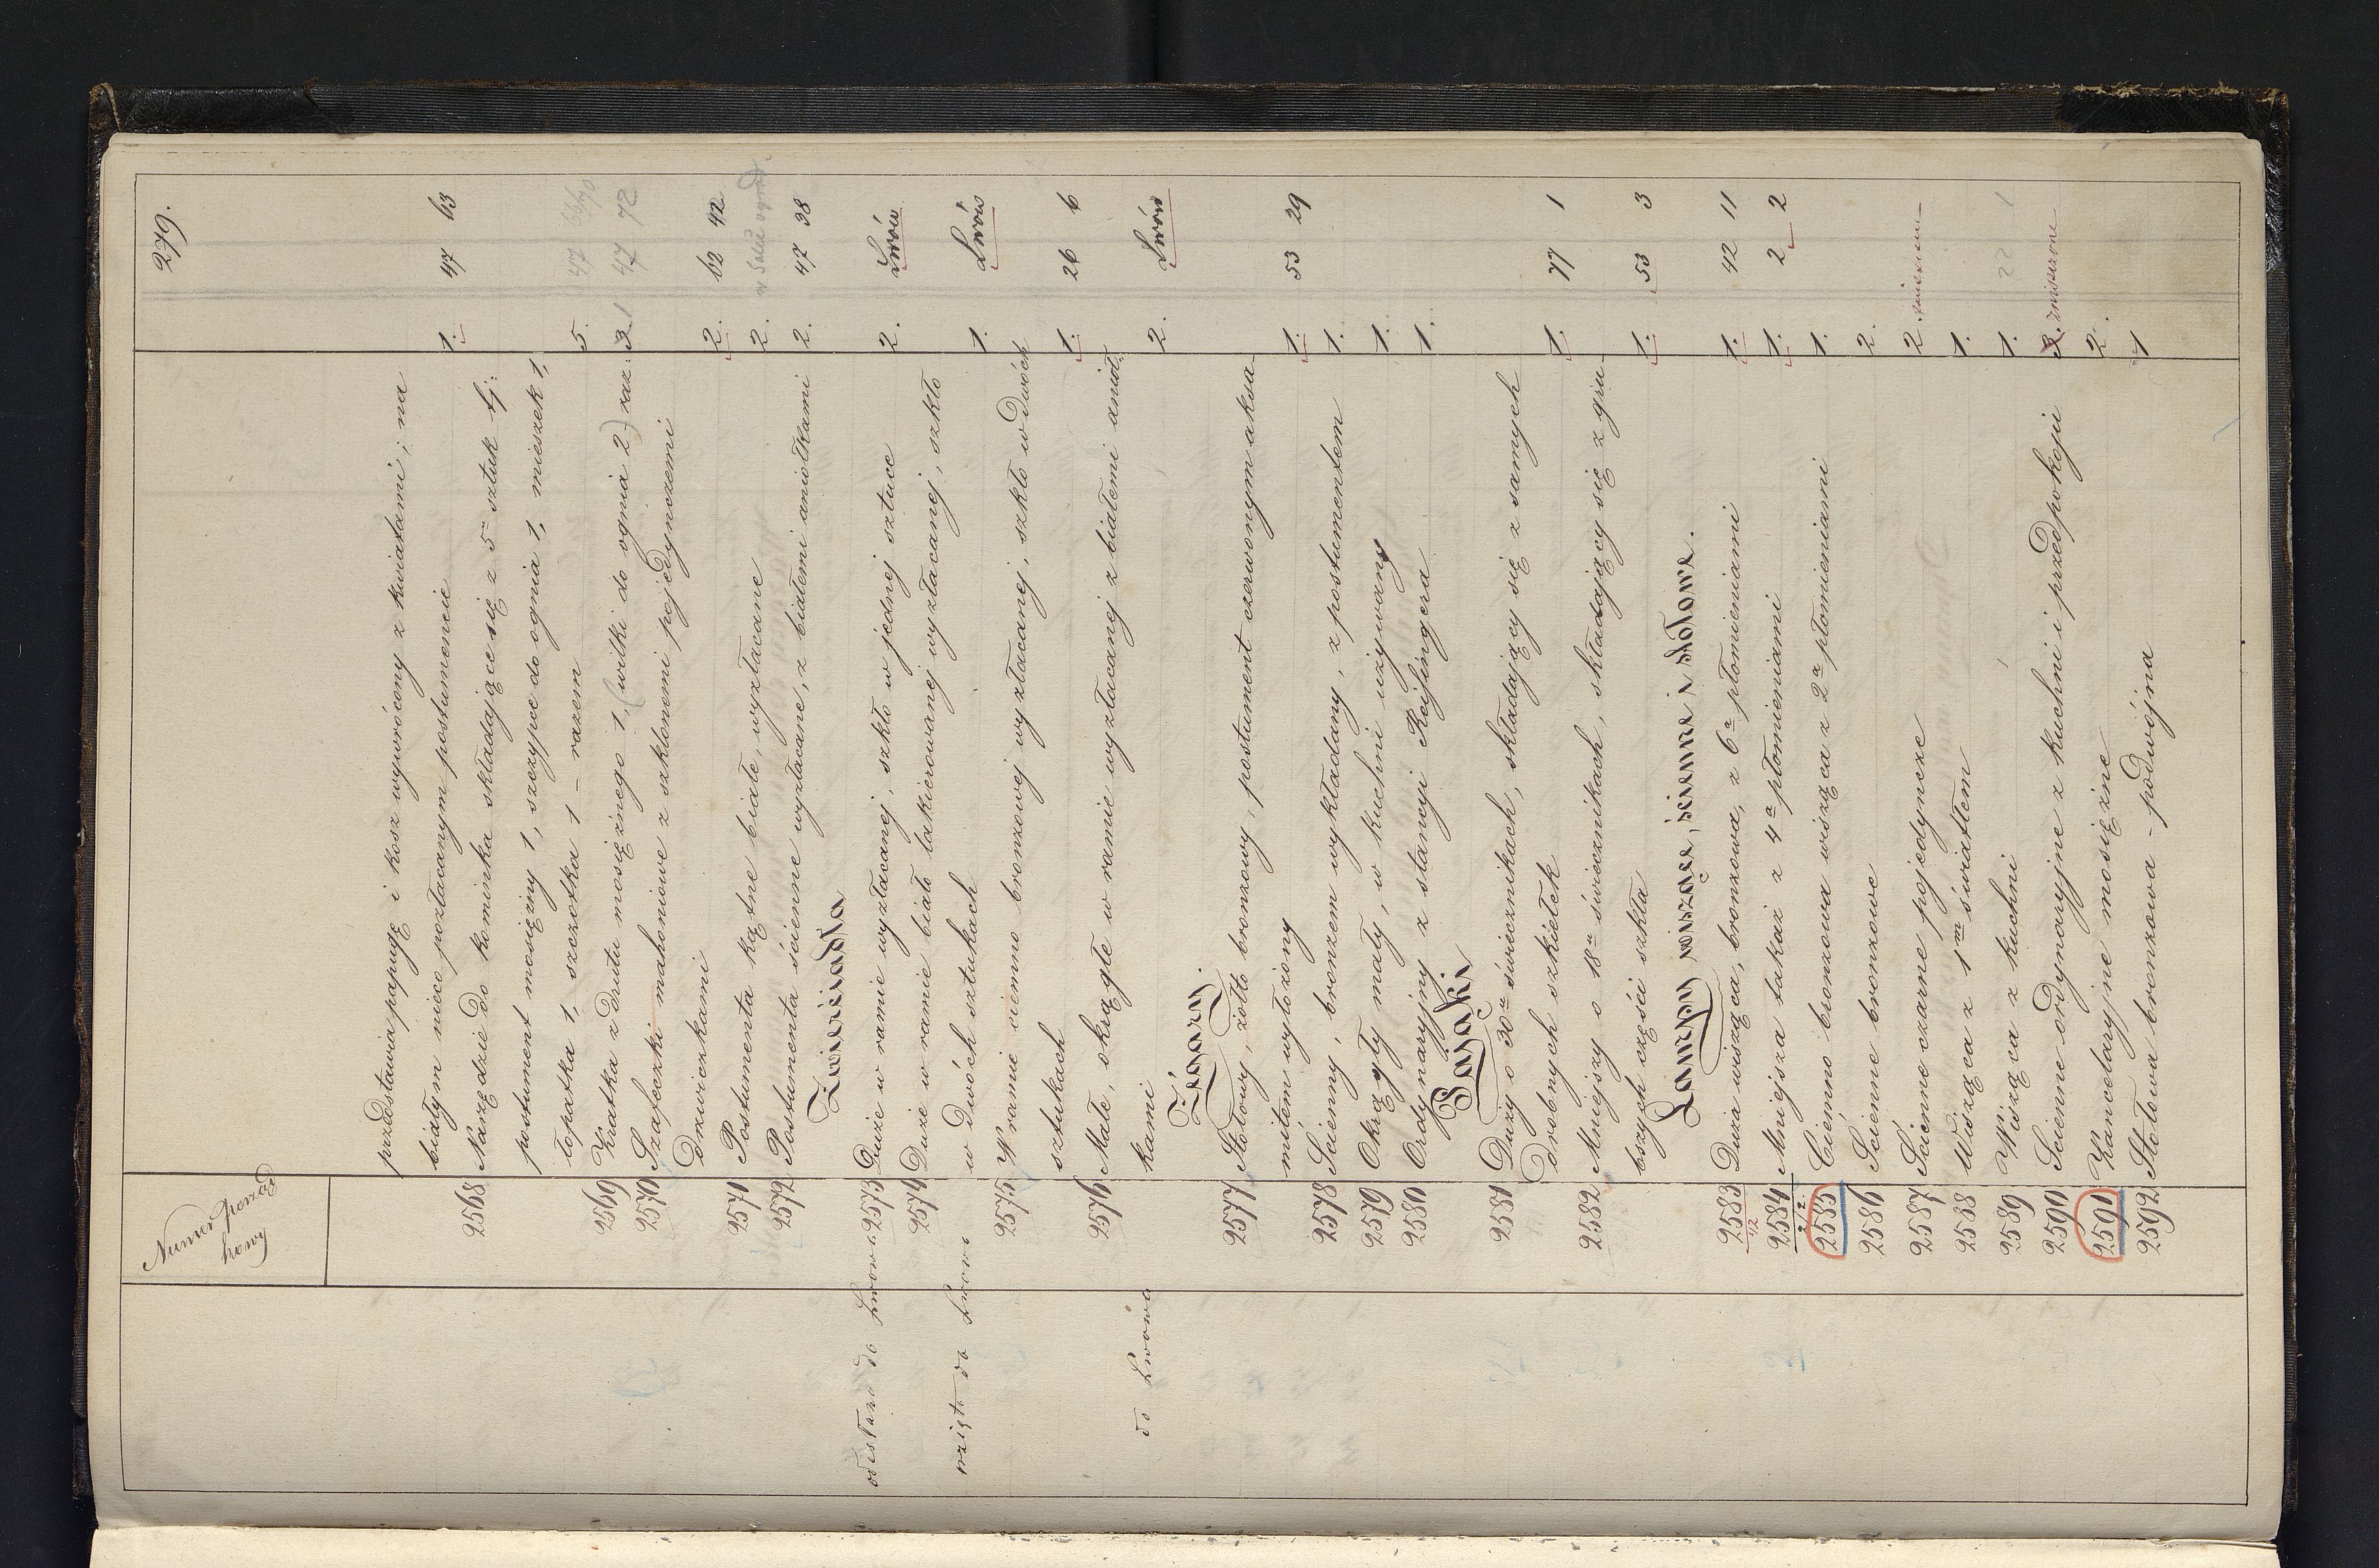 279.
Numer porząd
kowy
przedstawia papugę i kosz wywrócony z kwiatami; na
białym nieco pozłacanym postumencie 1. 47 63
2568 Narzędzie do kominka składające się z 5 sztuk tj:
postument mosiężny 1, szczypce do ognia 1, mieszek 1,
łopatka 1, szczotka 1 – razem 5. 47 66/70
2569 Kratka z drutu mosiężnego 1, (wilki do ognia 2) raz: 3 1 47 72
2570 Szafeczki mahoniowe z szklonemi pojedynczemi
drzwiczkami 2. 62 42
2571 Postumenta kątne białe, wyzłacane 2.
2572 Postumenta ścienne wyzłacane, z białemi aniołkami 2. 47 38
Zwierciadła
odesłano do Lwowa 2573 Duże w ramie wyzłacanej, szkło w jednej sztuce 2. Lwów
2574 Duże w ramie biało lakierowanej wyzłacanej, szkło
wzięto do Lwowa w dwóch sztukach 1. Lwów
2575 W ramie ciemno bronzowej wyzłacanej, szkło w dwóch
sztukach 1. 26 6
2576 Małe, okrągłe w ramie wyzłacanej z białemi anioł:
do Lwowa kami 2. Lwów
Zégary.
2577 Stołowy, żółto bronzowy, postument czerwonym aksa
mitem wyłożony 1. 53 29
2578 Ścienny, bronzem wykładany, z postumentem 1.
2579 Okrągły mały, w kuchni używany 1.
2580 Ordynaryjny z stancyi Rejfingera 1.
Pająki.
2581 Duży o 30u świecznikach, składający się z samych
drobnych szkiełek 1. 77 1
2582 Mniejszy o 18u świecznikach, składający się z gru
bszych części szkła 1. 53 3
Lampy wiszące, ścienne i stołowe.
2583 Duża wisząca, bronzowa, z 6a płomieniami 1. 42 11
2584 Mniejsza takaż z 4a płomieniami 1. 2 2
2585 Ciemno bronzowa wisząca z 2a płomieniami 1.
2586 Ścienne bronzowe 2.
2587 Ścienne czarne pojedyncze 2.
2588 Wisząca z 1m światłem 1.
2589 Wisząca z kuchni 1. 22 1
2590 Ścienne ordynaryjne z kuchni i przedpokoju 3. zniszczone
2591 Kancelaryjne mosiężne 2.
2592 Stołowa bronzowa – podwójna 1